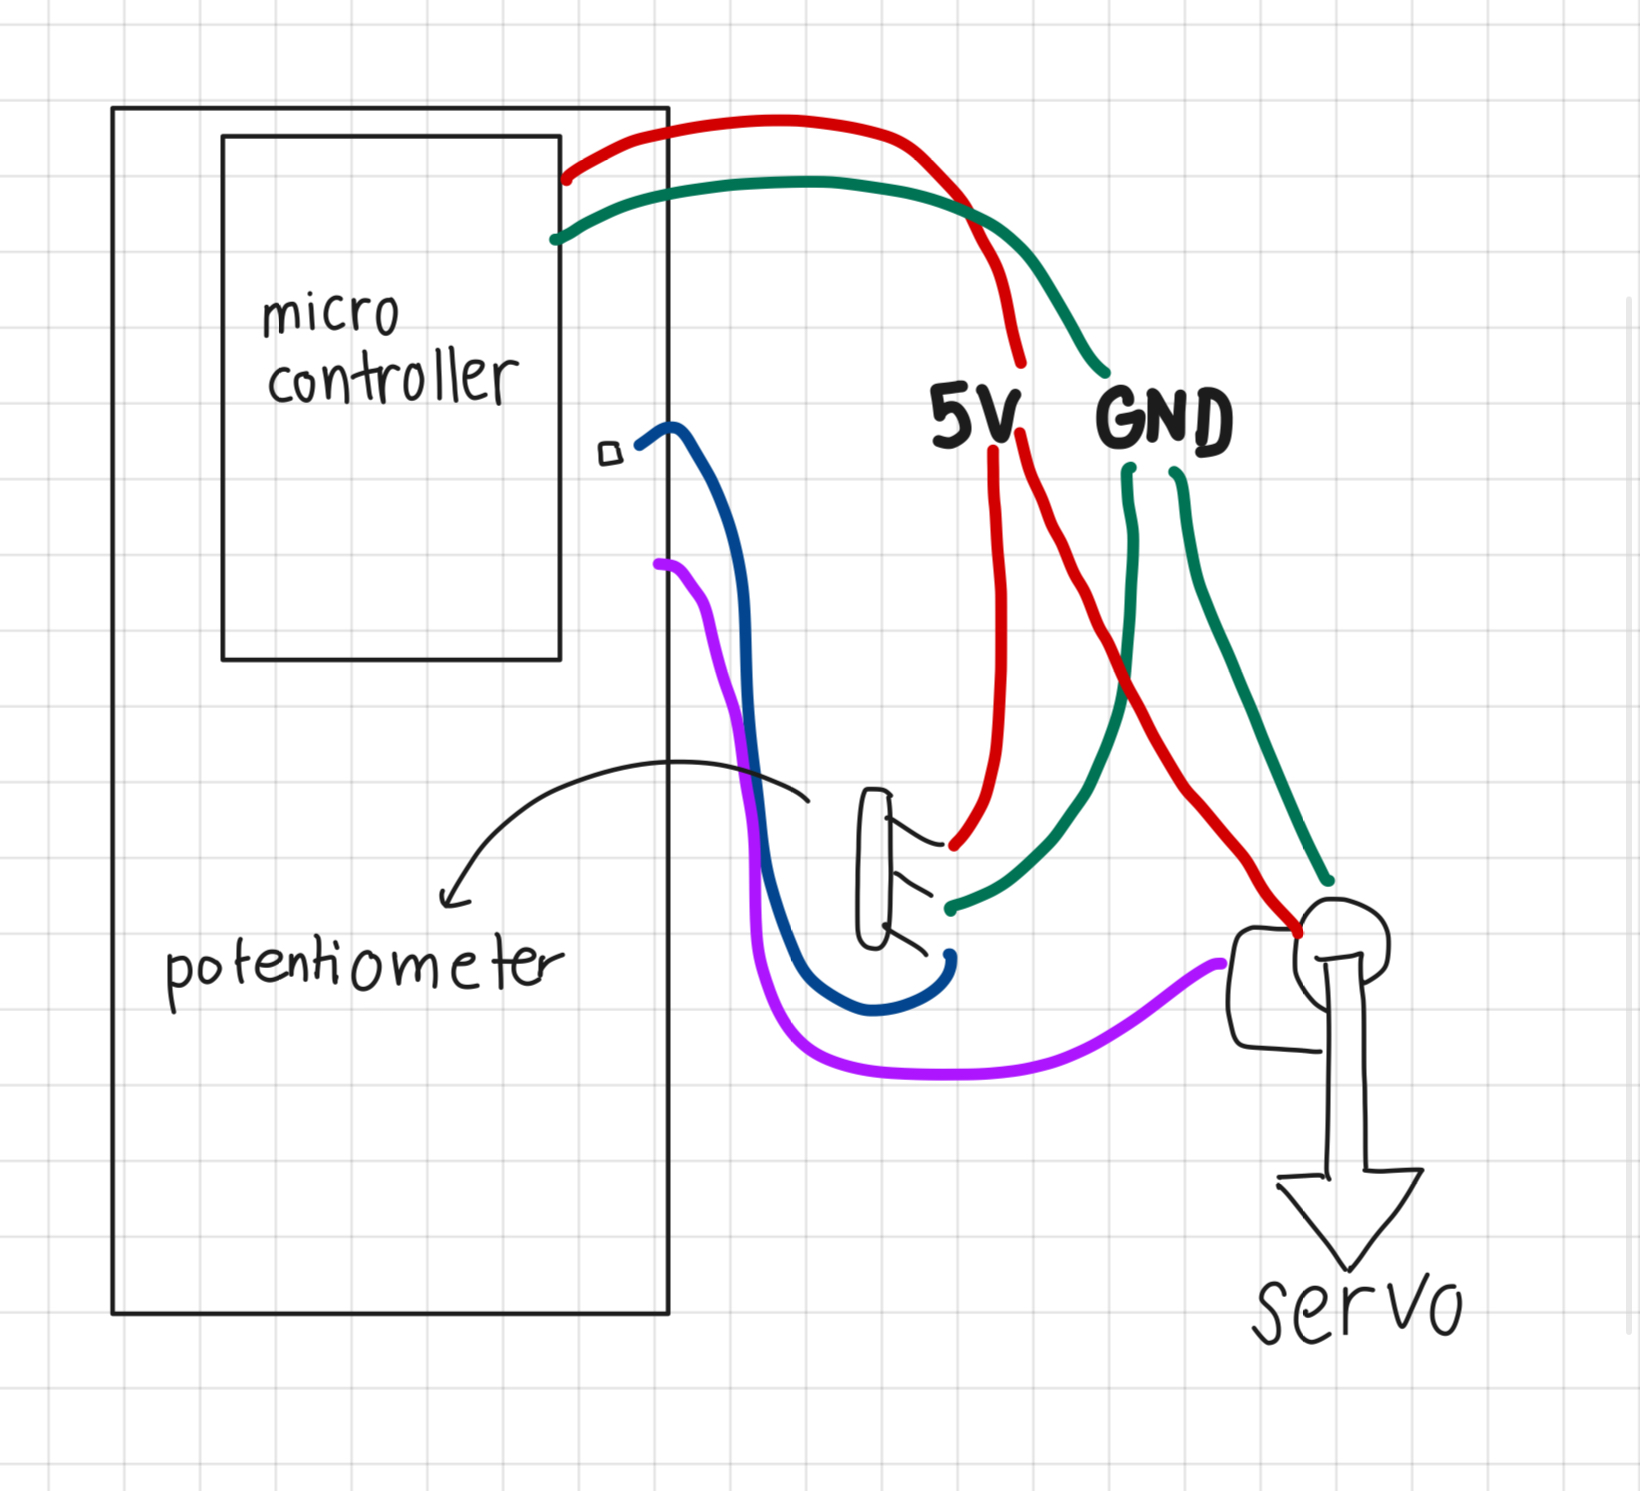 micro
controller
5V GND
potentiometer
servo